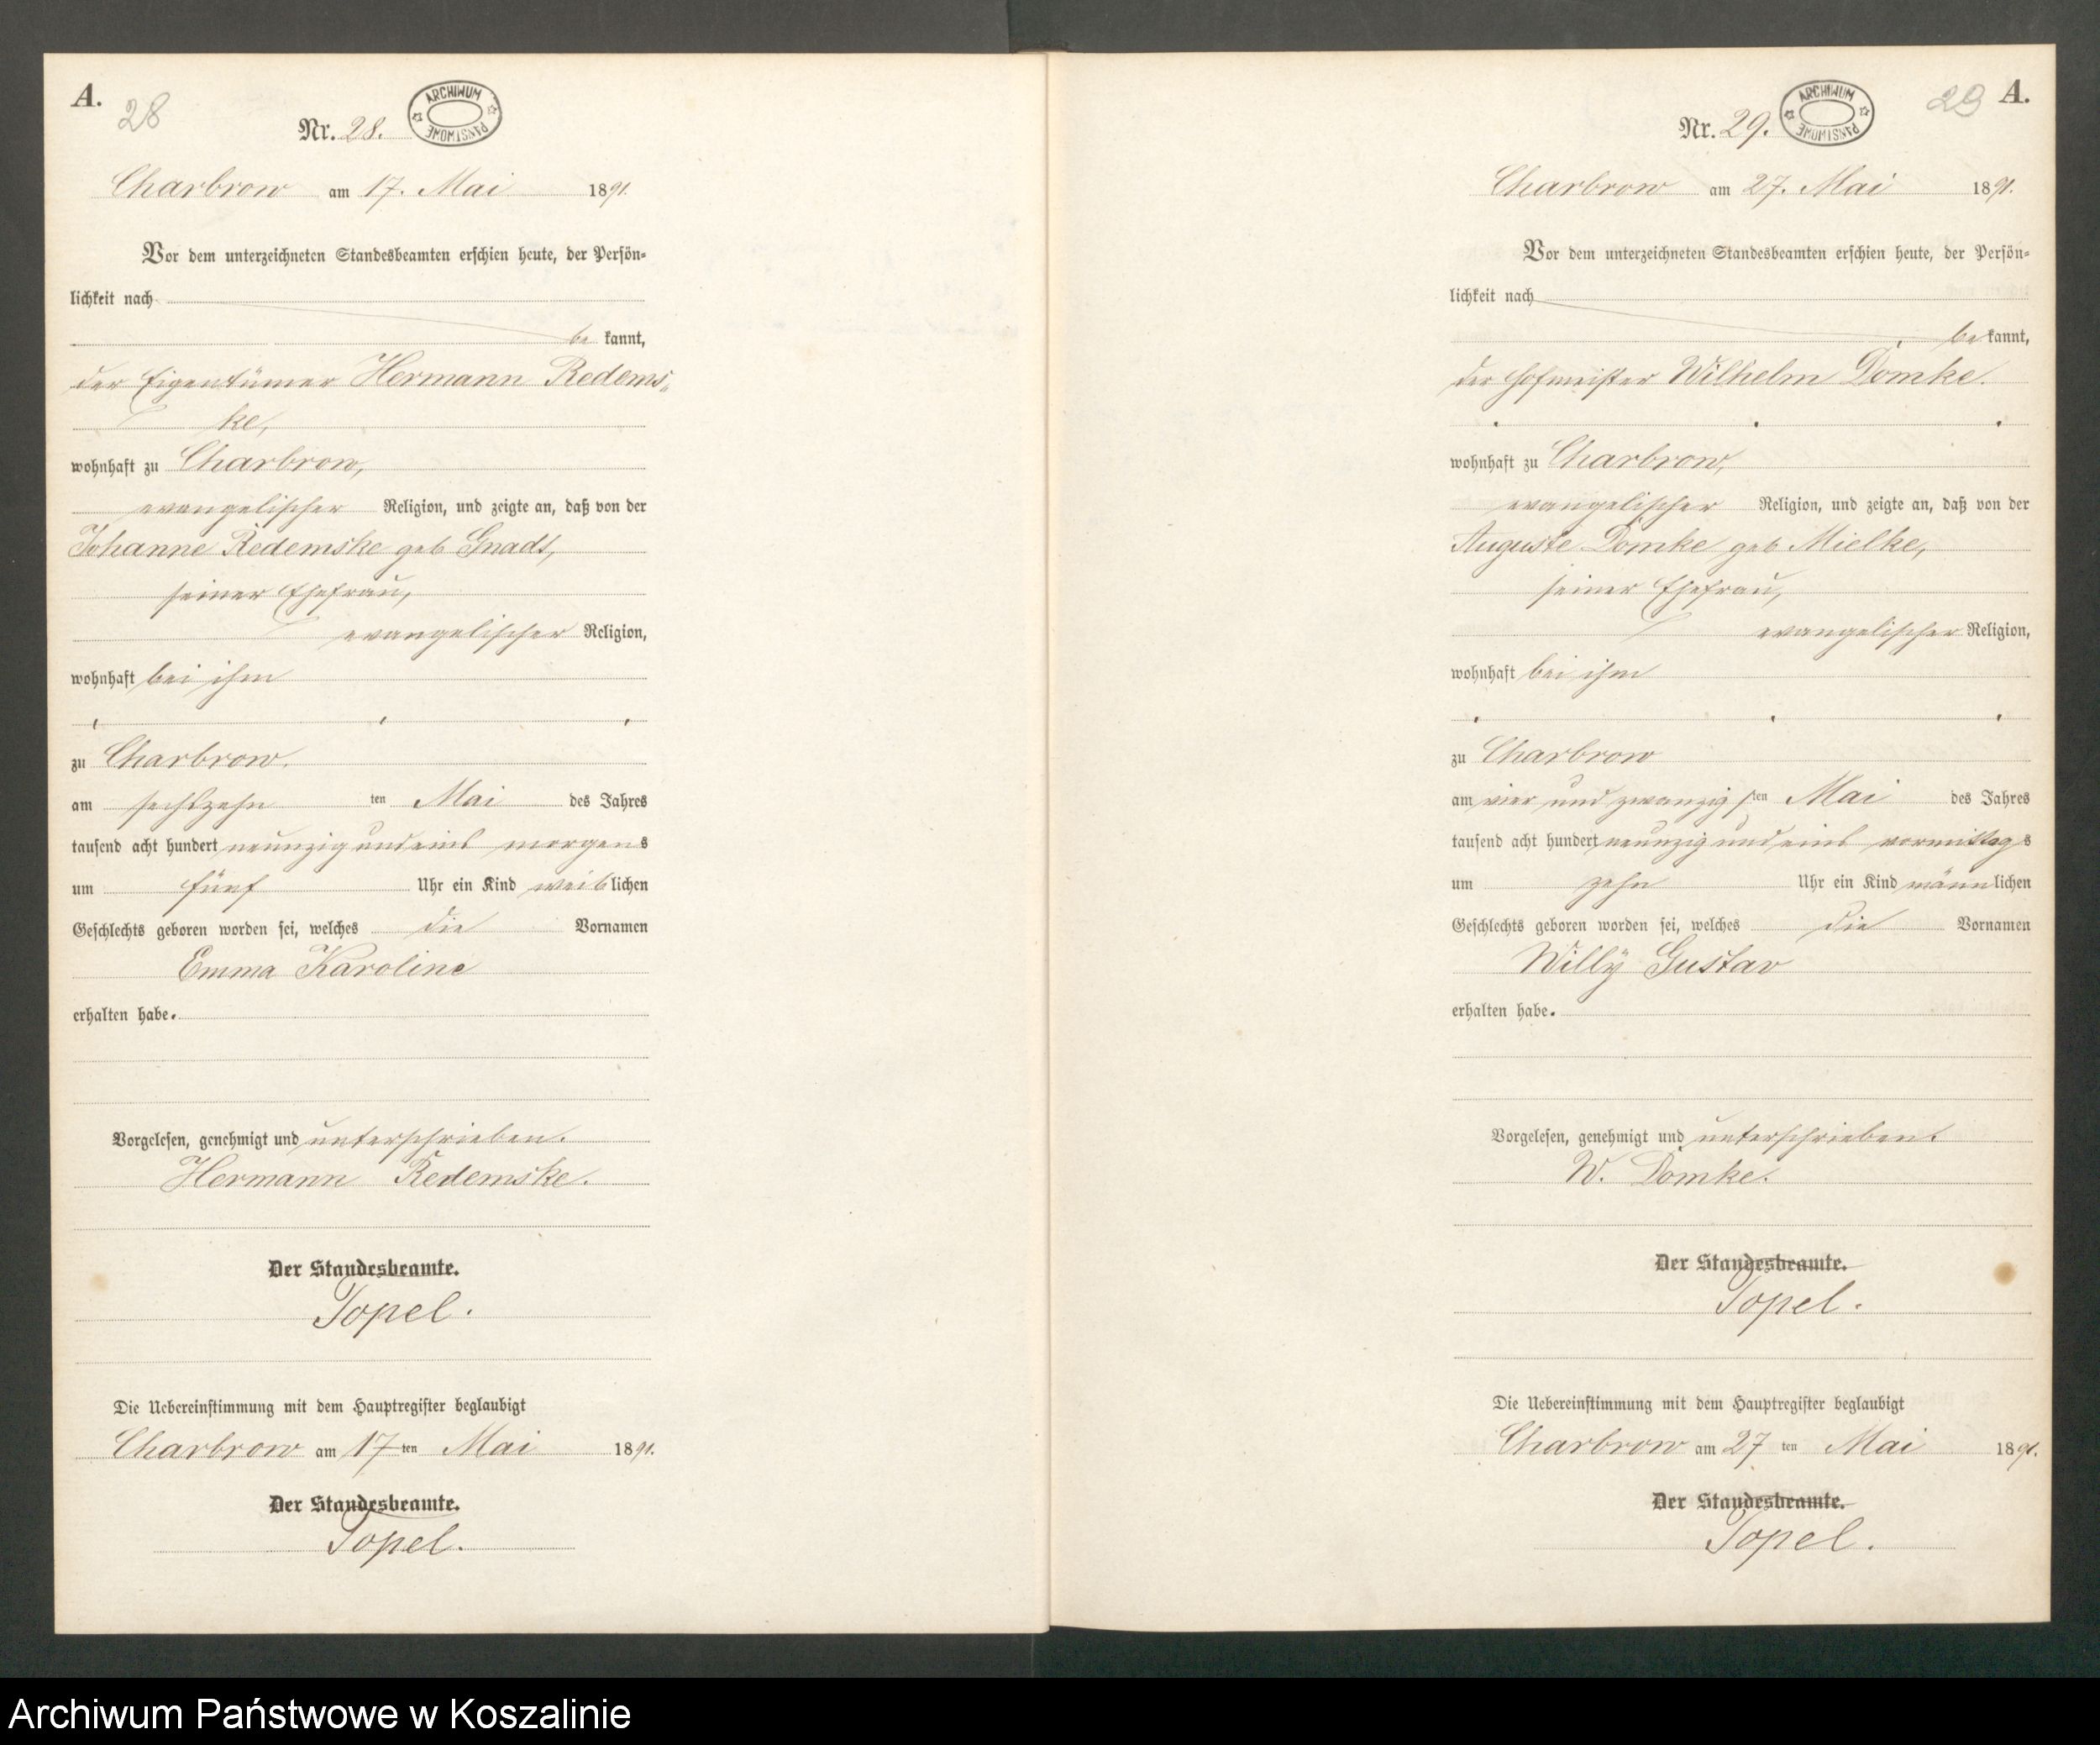 A.
28
Nr. 28.
ARCHIWUM PAŃSTWOWE
Charbrow am 17. Mai 1891.
Vor dem unterzeichneten Standesbeamten erschien heute, der Persön-
lichkeit nach
be kannt,
der Eigentümer Hermann Redems-
ke,
wohnhaft zu Charbrow,
evangelischer Religion, und zeigte an, daß von der
Johanne Redemske geb Gnadt,
seiner Ehefrau,
evangelischer Religion,
wohnhaft bei ihm
zu Charbrow.
am sechszehn ten Mai des Jahres
tausend acht hundert neunzig und eins morgens
um fünf Uhr ein Kind weiblichen
Geschlechts geboren worden sei, welches die Vornamen
Emma Karoline
erhalten habe.
Vorgelesen, genehmigt und unterschrieben.
Hermann Redemske.
Der Standesbeamte.
Topel.
Die Uebereinstimmung mit dem Hauptregister beglaubigt
Charbrow am 17ten Mai 1891.
Der Standesbeamte.
Topel.
29 A.
Nr. 29.
ARCHIWUM PAŃSTWOWE
Charbrow am 27. Mai 1891.
Vor dem unterzeichneten Standesbeamten erschien heute, der Persön-
lichkeit nach
be kannt,
der Hofmeister Wilhelm Domke.
wohnhaft zu Charbrow,
evangelischer Religion, und zeigte an, daß von der
Auguste Domke geb Mielke,
seiner Ehefrau,
evangelischer Religion,
wohnhaft bei ihm
zu Charbrow
am vier und zwanzigsten Mai des Jahres
tausend acht hundert neunzig und eins vormittags
um zehn Uhr ein Kind männlichen
Geschlechts geboren worden sei, welches die Vornamen
Willy Gustav
erhalten habe.
Vorgelesen, genehmigt und unterschrieben.
W. Domke.
Der Standesbeamte.
Topel.
Die Uebereinstimmung mit dem Hauptregister beglaubigt
Charbrow am 27 ten Mai 1891.
Der Standesbeamte.
Topel.
Archiwum Państwowe w Koszalinie